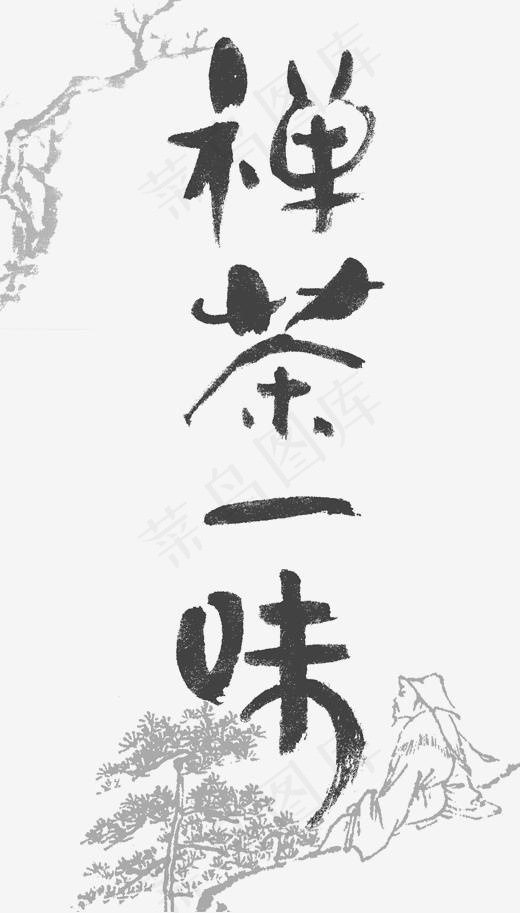 禅茶一味
菜鸟图库
菜鸟图库
菜鸟图库